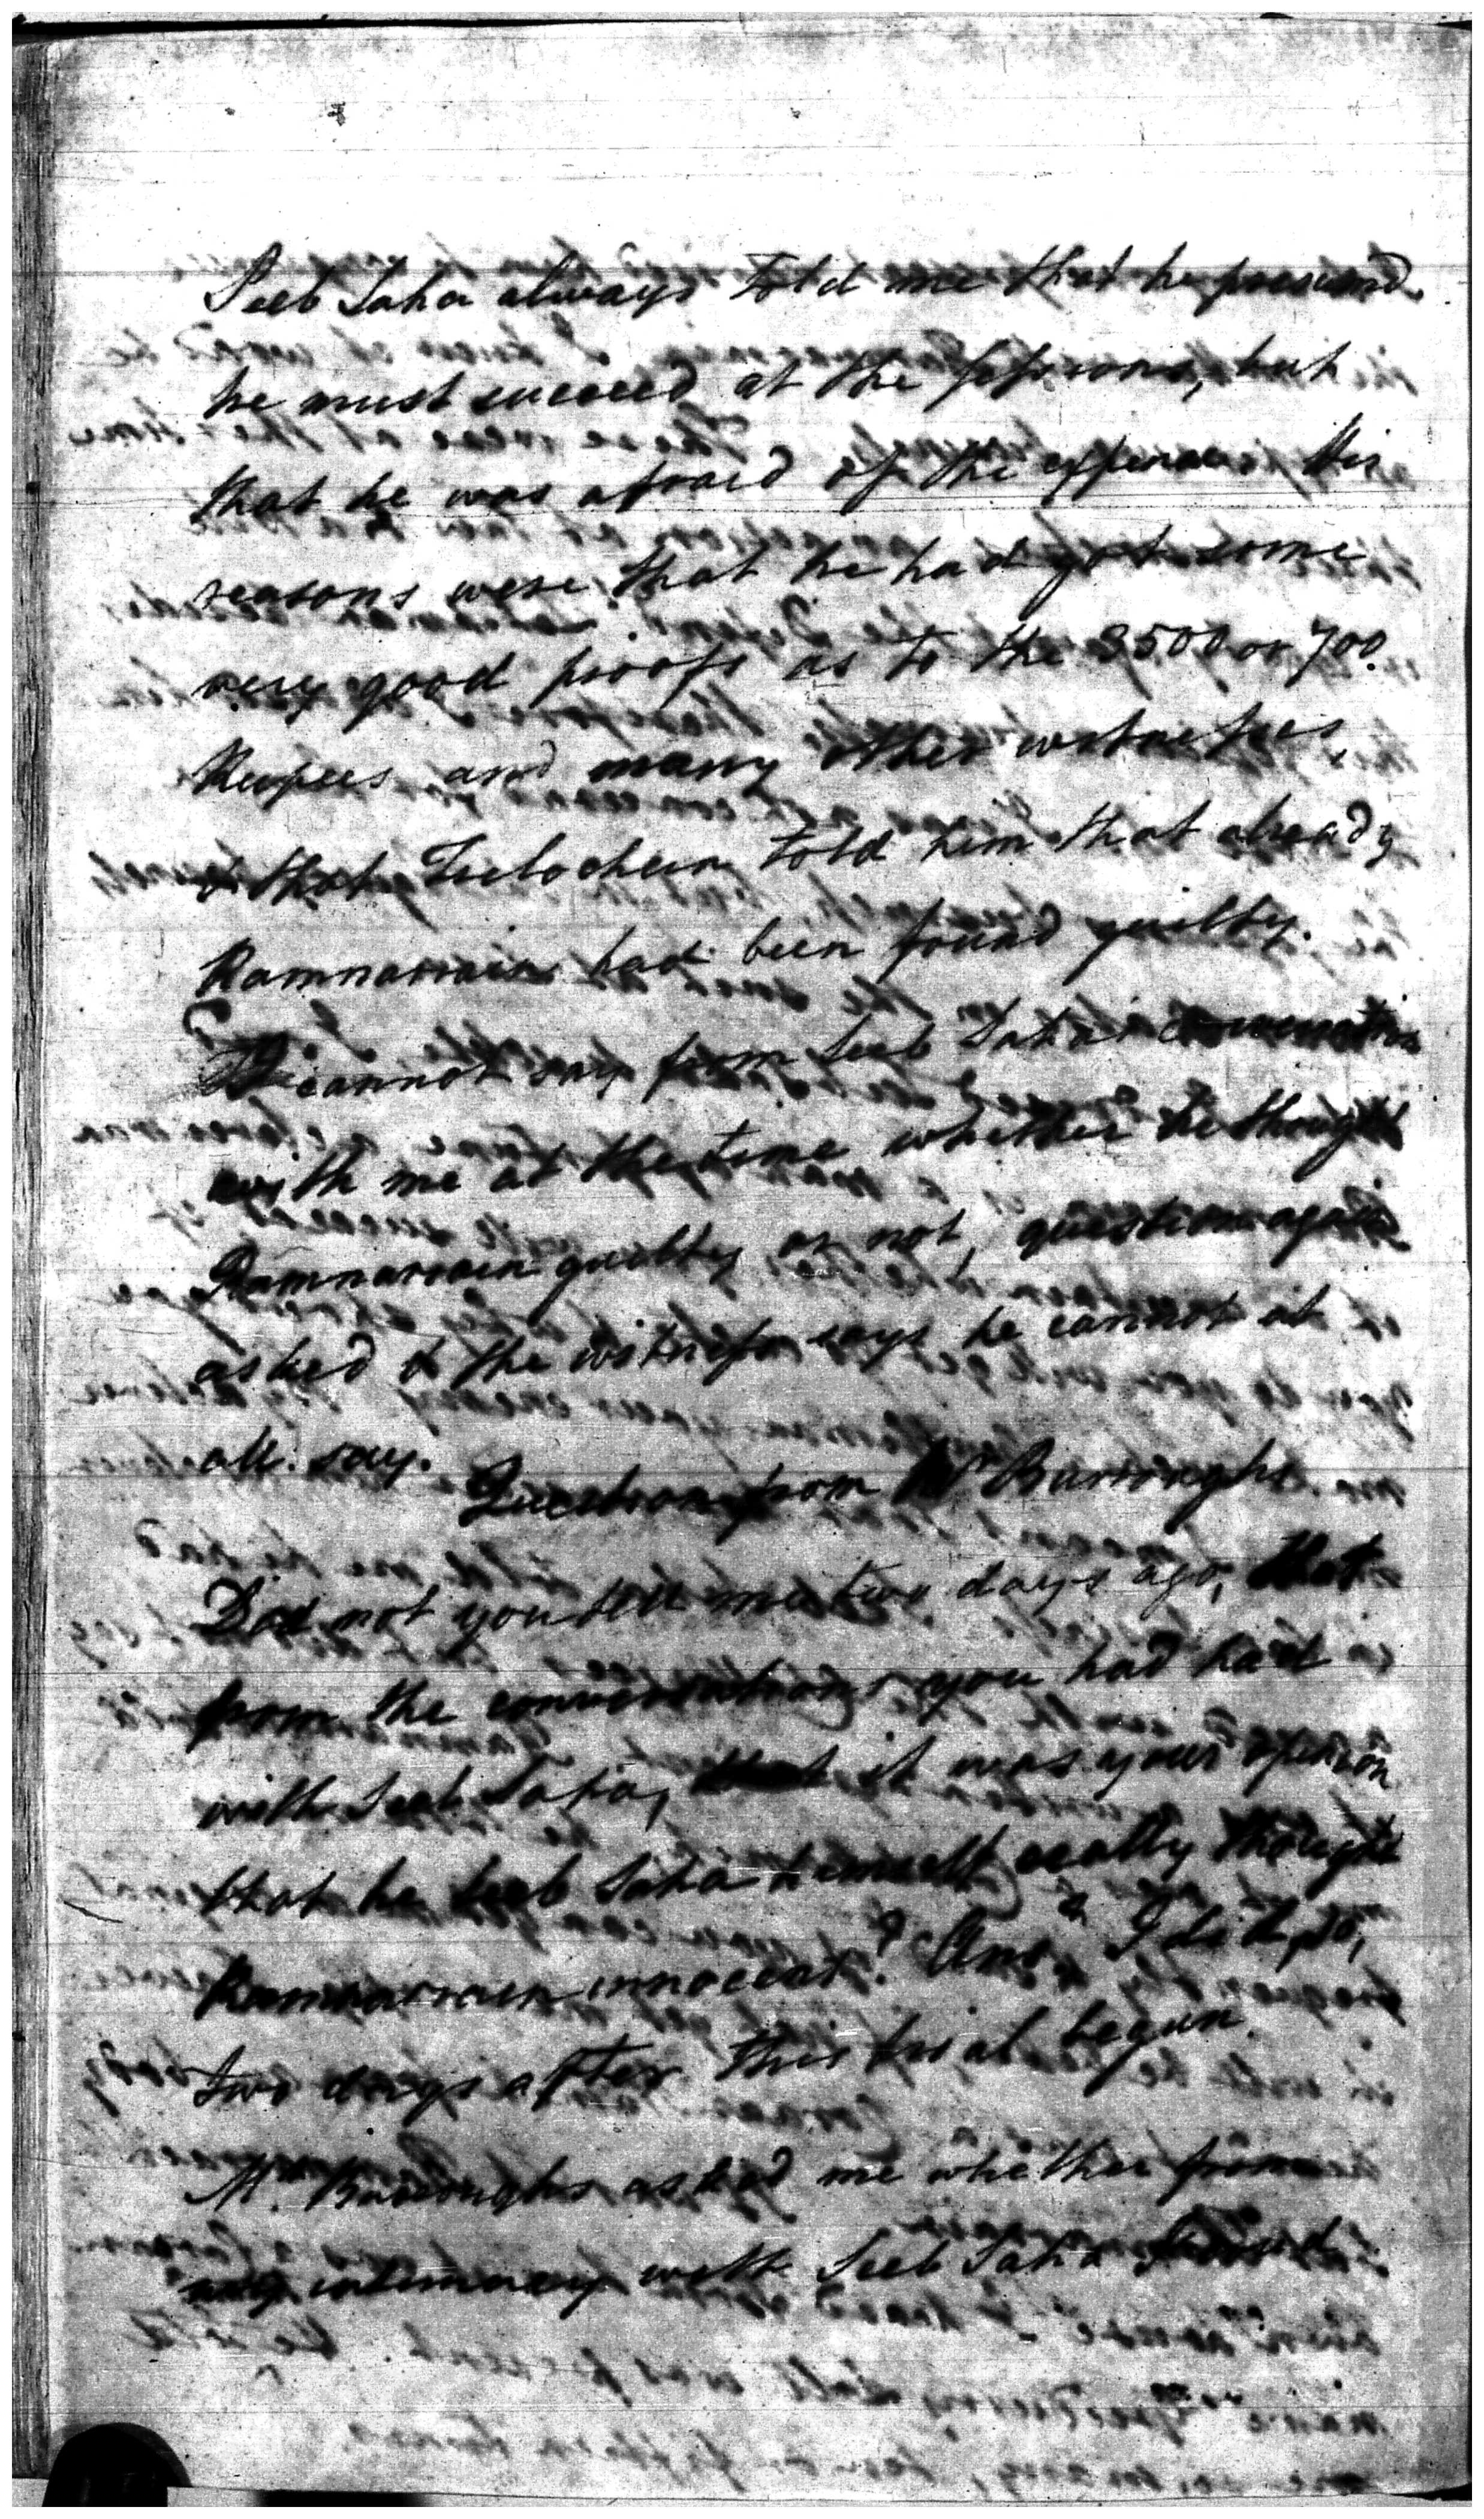 Seeb Saha always told me that he presumed
he must succeed at the Sessions, but
that he was afraid of the expence His
reasons were that he had got some
very good proofs as to the 3500 or 700
Rupees and many other witnesses,
& that Teelochun told him that already
Ramnarrain had been found guilty.
I cannot say from Seeb Saha's conversation
with me at the time whether he thought
Ramnarrain guilty or not, question again
asked & the witness says he cannot at
all say. Question from Mr Burroughs
Did not you tell me two days ago, that
from the conversations you had had
with Seeb Saha, that it was your opinion
that he Seeb Saha himself really thought
Ramnarrain innocent? Ans. I did so,
two days after this trial began.
Mr Burroughs asked me whether from
my intimacy with Seeb Saha